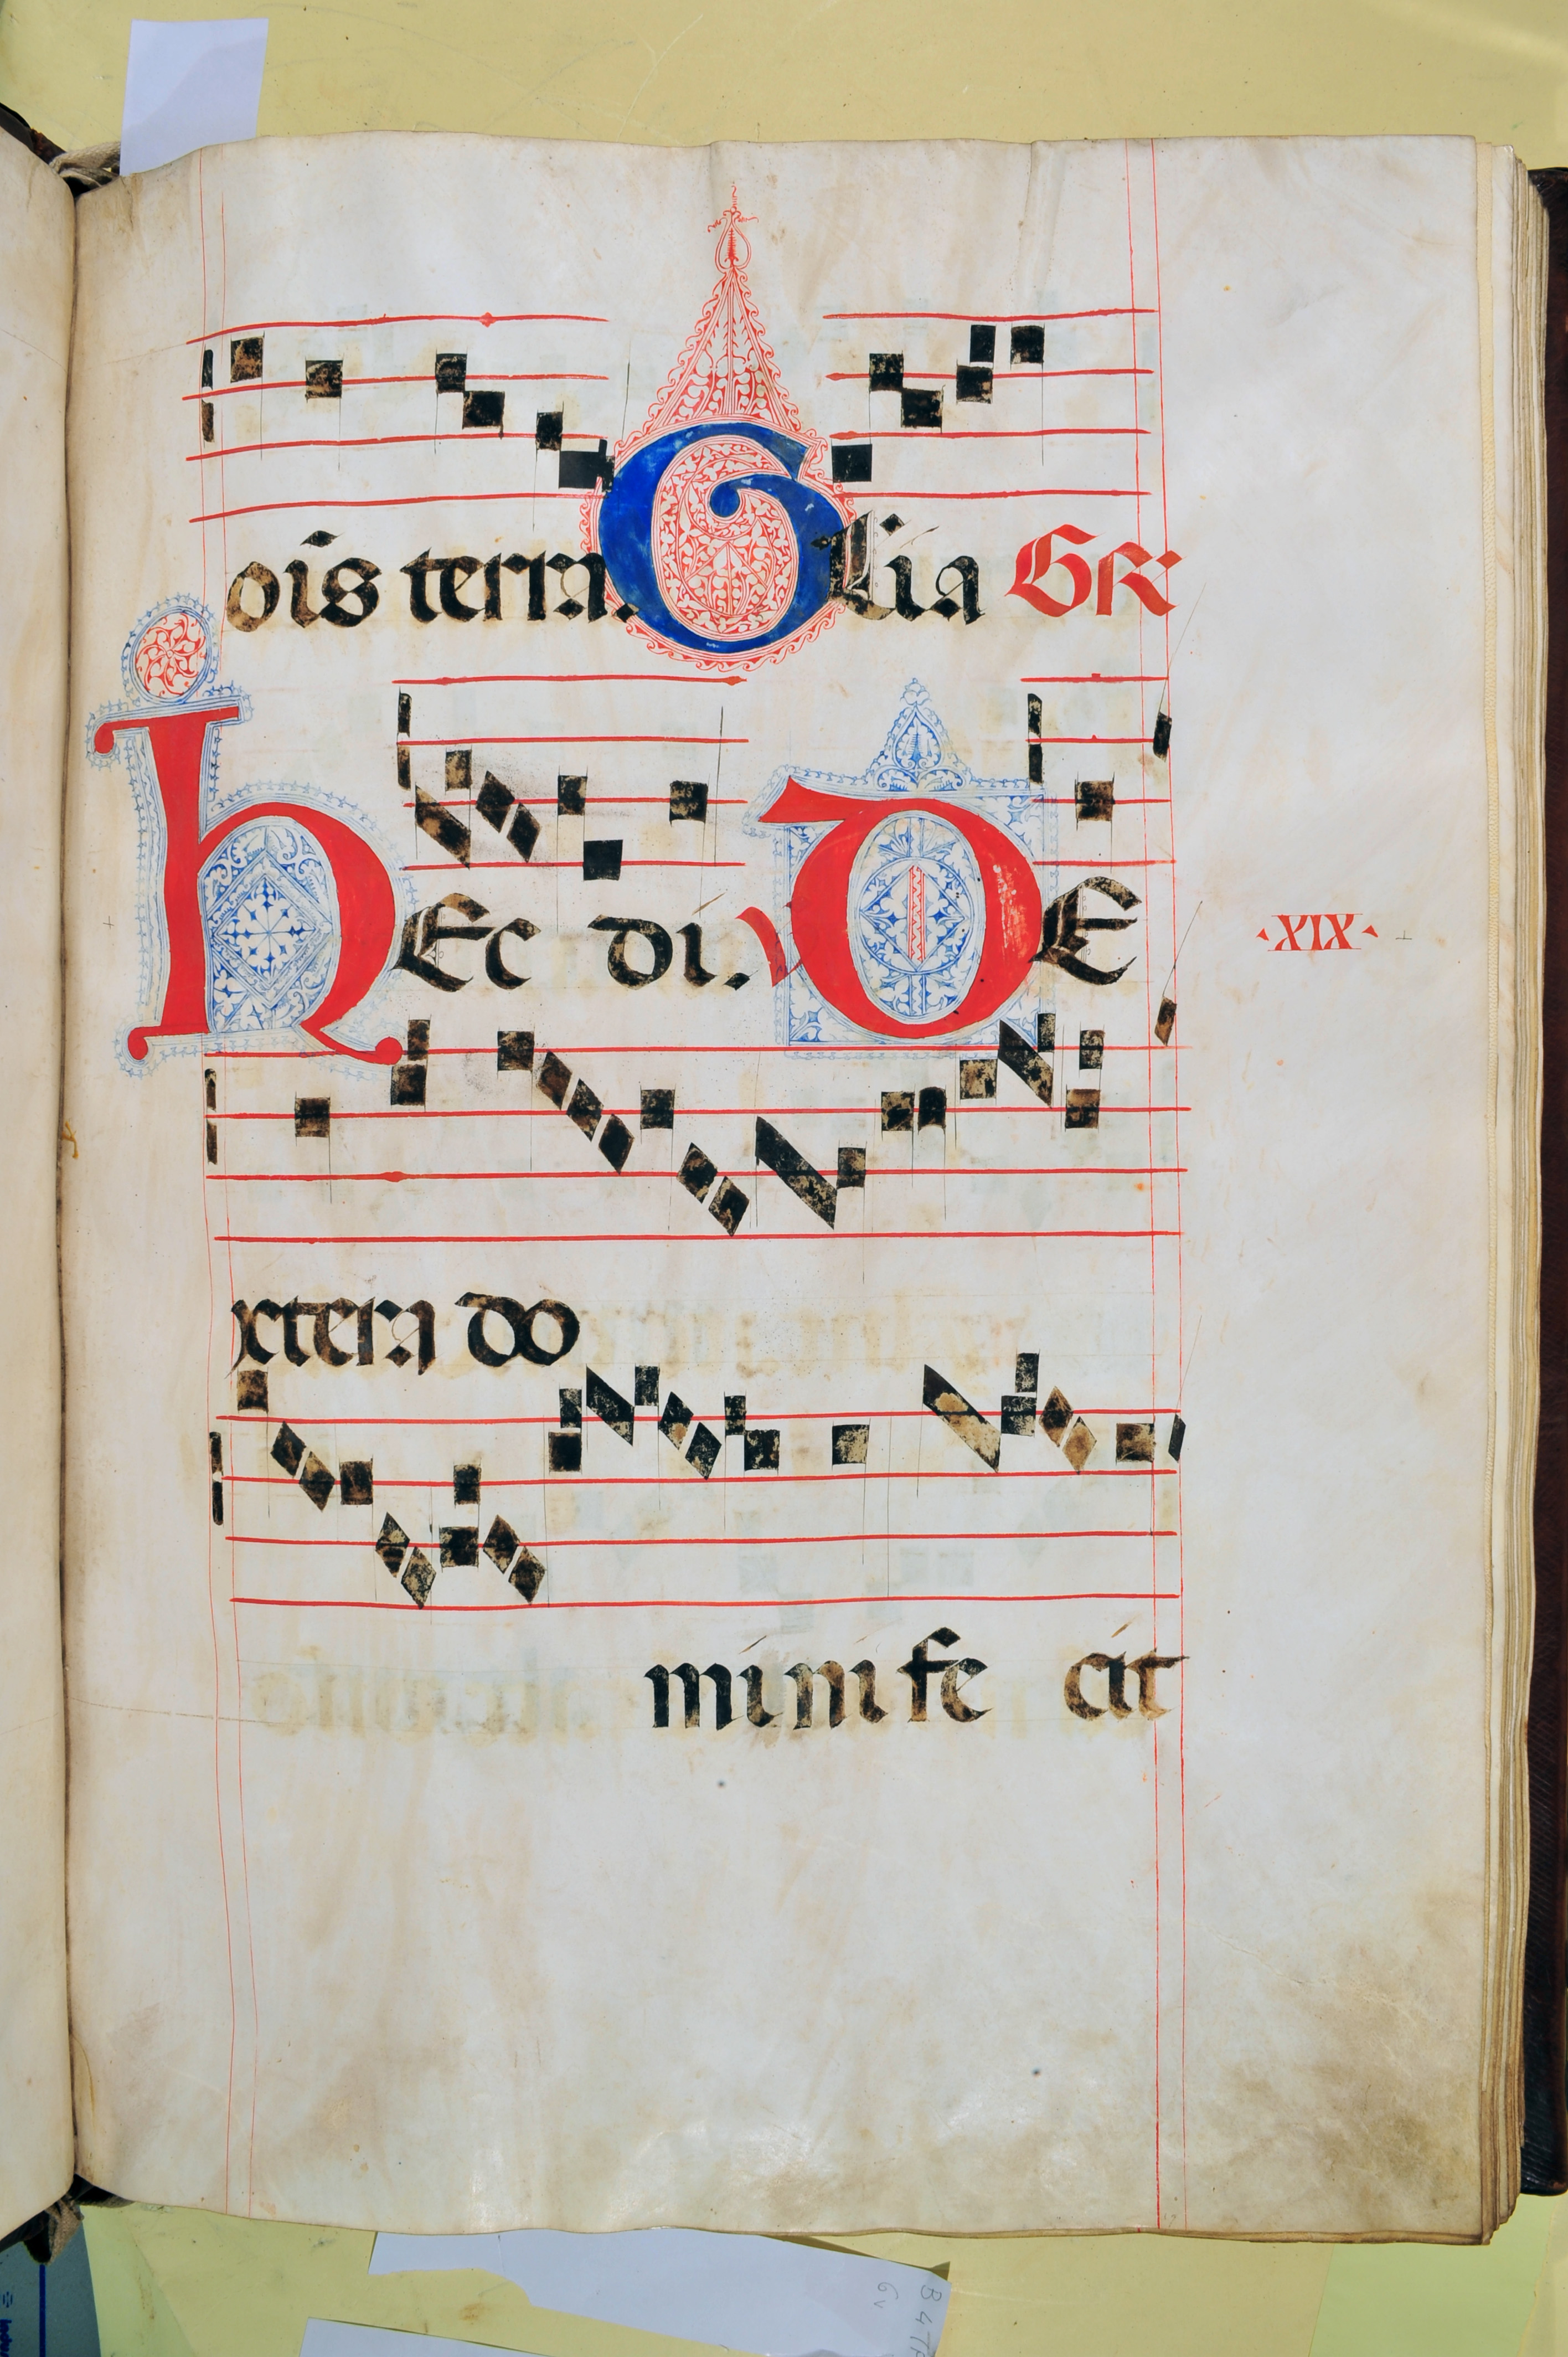 oīs terra. Glia GR
hEc di. V DE XIX
xtera do
mini fe cit
B 47R
6v